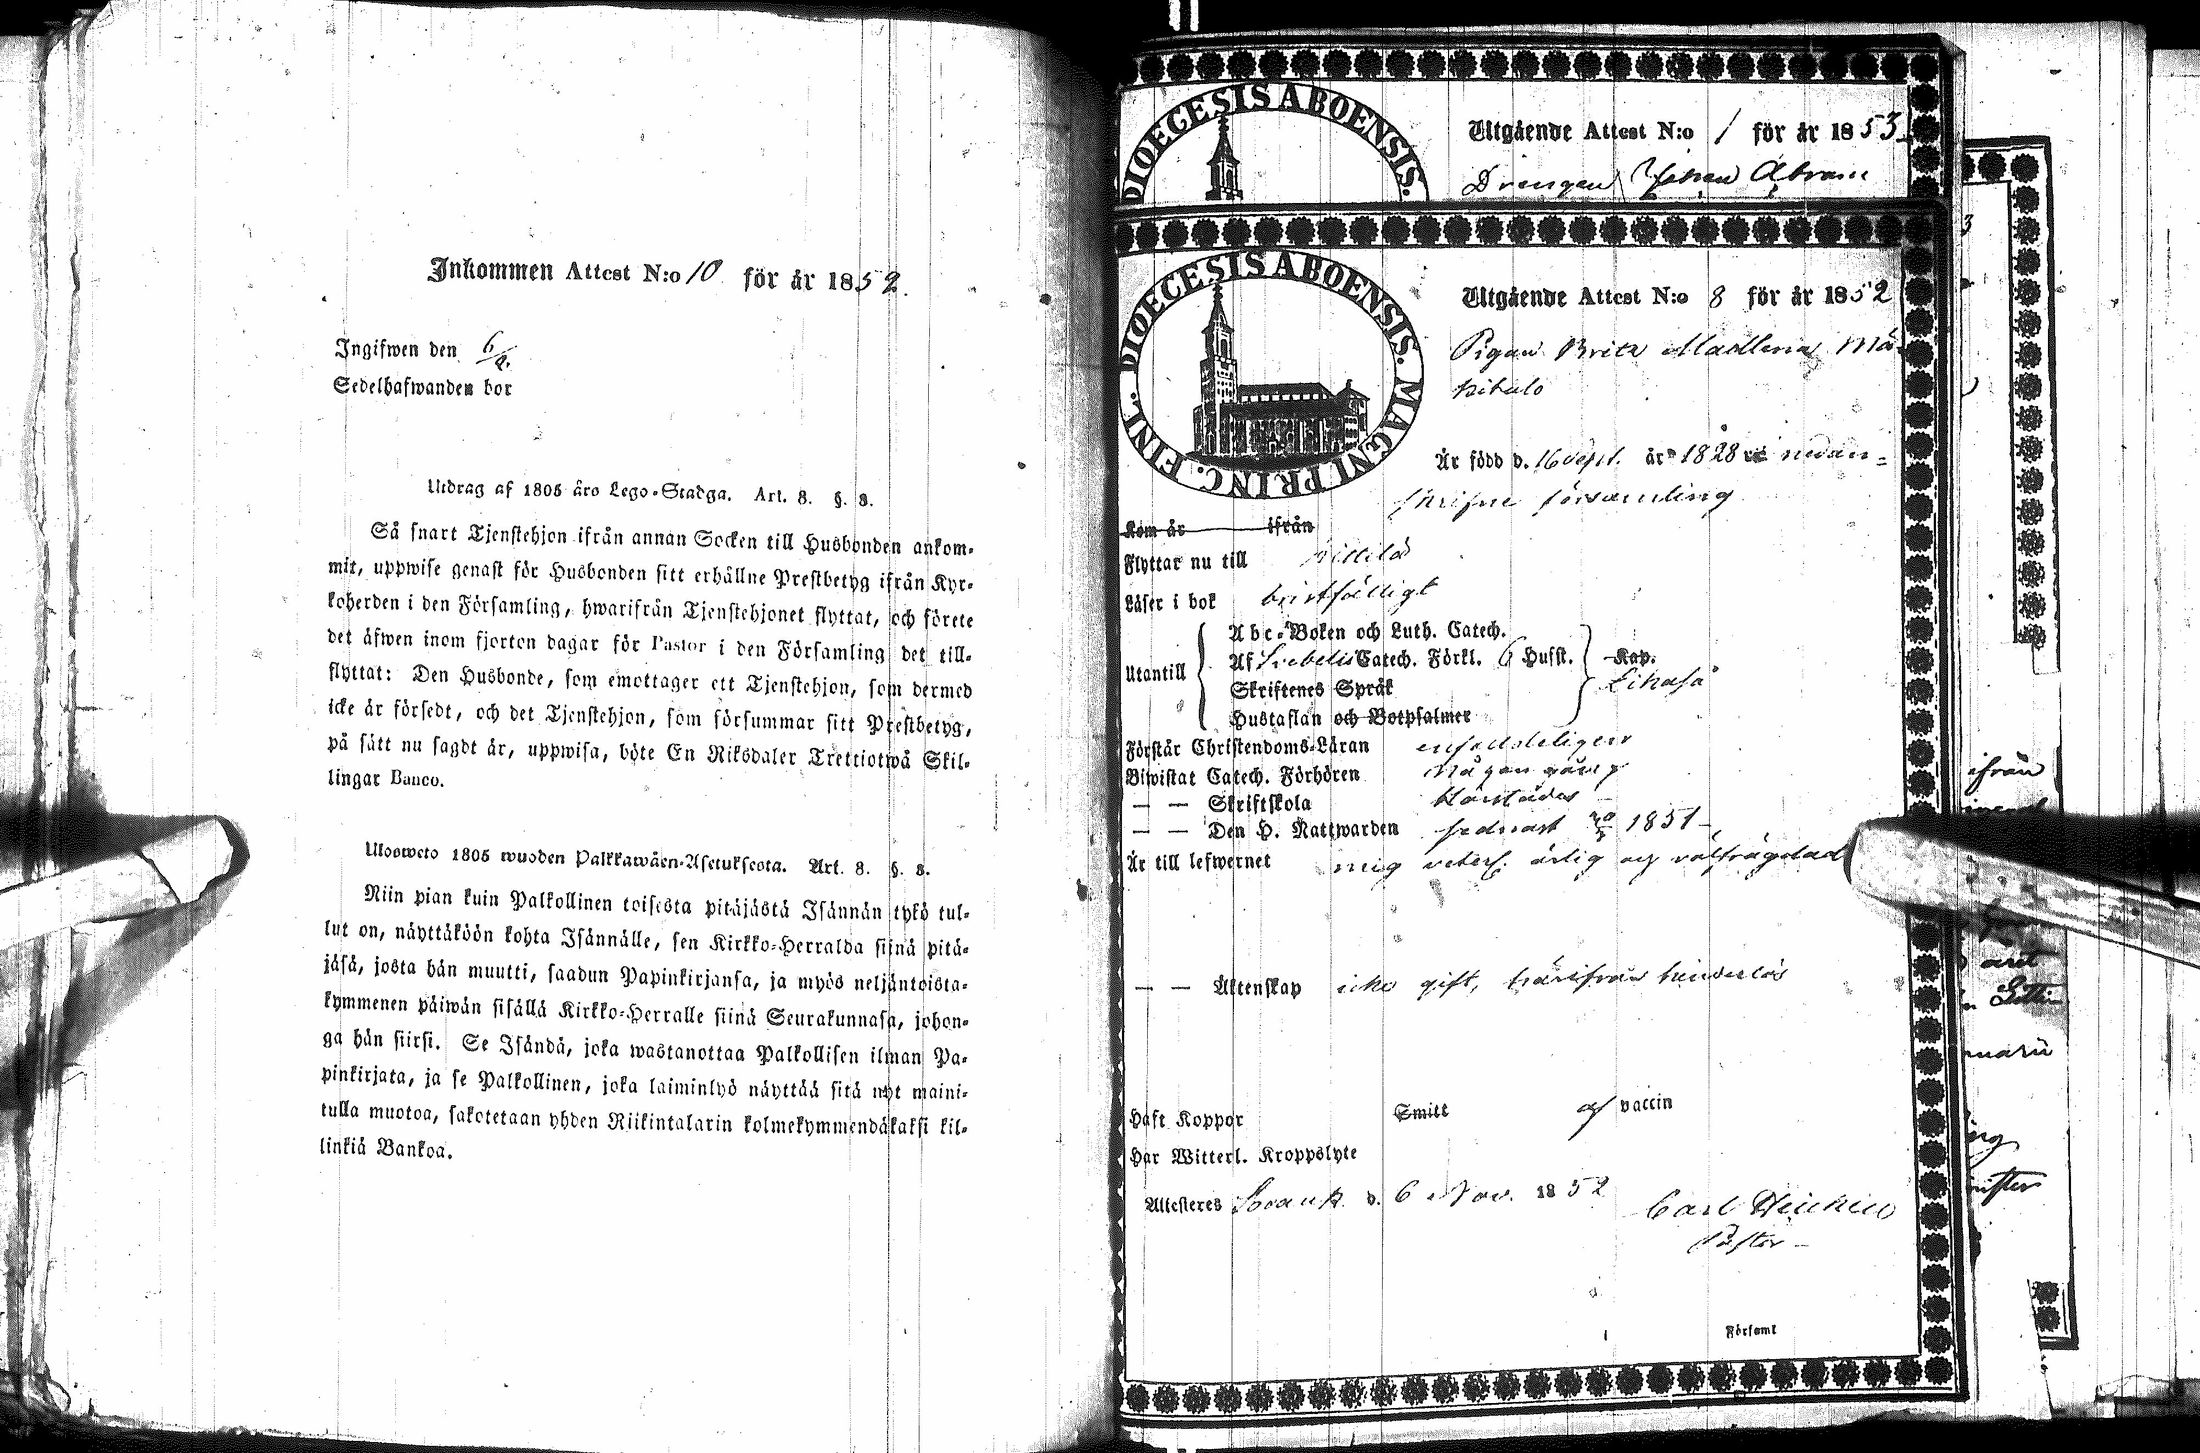 Inkommen Attest N:o 10 för år 1852.
Ingifwen den 6/
Sedelhafwanden bor
Utdrag af 1805 års Lego-Stadga. Art. 8. §. 8.
Så snart Tjenstehjon ifrån annan Socken till Husbonden ankom-
mit, uppwise genast för Husbonden sitt erhållne Prestbetyg ifrån Kyr-
koherden i den Församling, hwarifrån Tjenstehjonet flyttat, och förete
det äfwen inom fjorton dagar för Pastor i den Församling det till-
flyttat: Den Husbonde, som emottager ett Tjenstehjon, som dermed
icke är försedt, och det Tjenstehjon, som försummar sitt Prestbetyg,
på sätt nu sagdt är, uppwisa, böte En Riksdaler Trettiotwå Skil-
lingar Banco.
Ulosweto 1805 wuoden Palkkawäen-Asetuksesta. Art. 8. §. 8.
Niin pian kuin Palkollinen toisesta pitäjästä Isännän tykö tul-
lut on, näyttäköön kohta Isännälle, sen Kirkko-Herralda siinä pitä-
jäsä, josta hän muutti, saadun Papinkirjansa, ja myös neljäntoista-
kymmenen päiwän sisällä Kirkko-Herralle siinä Seurakunnasa, johon-
ga hän siirsi. Se Isändä, joka wastanottaa Palkollisen ilman Pa-
pinkirjata, ja se Palkollinen, joka laiminlyö näyttää sitä nyt maini-
tulla muotoa, sakotetaan yhden Riikintalarin kolmekymmendäkaksi kil-
linkiä Bankoa.
DIOECESIS ABOENSIS.
Utgående Attest N:o 1 för år 1853
Drengen Johan Abram
DIOECESIS ABOENSIS. MAGNI PRINC. FINL.
Utgående Attest N:o 8 för år 1852
Pigan Brita Madlena Mä-
kitalo
Är född d. 16 Sept. år 1828 i nedan-
skrifne församling
Kom år ifrån
Flyttar nu till Kittilä
Läser i bok bristfälligt
Utantill
Abc-Boken och Luth. Catech.
Af Svebelii Catech. Förkl. 6 Hufst. Kap.
Skriftenes Språk Likaså
Hustaflan och Botpsalmer
Förstår Christendoms-Läran enfaldeligen
Biwistat Catech. Förhören någon gång
— — Skriftskola härstädes
— — Den H. Nattwarden sednast 1851
Är till lefwernet mig veterl. ärlig och välfrägdad
— — Äktenskap icke gift, härifrån hinderlös
Haft Koppor Smitt af vaccin
Har Witterl. Kroppslyte
Attesteres d. 6 Nov. 1852
Carl
Pastor
Församl
ifrån